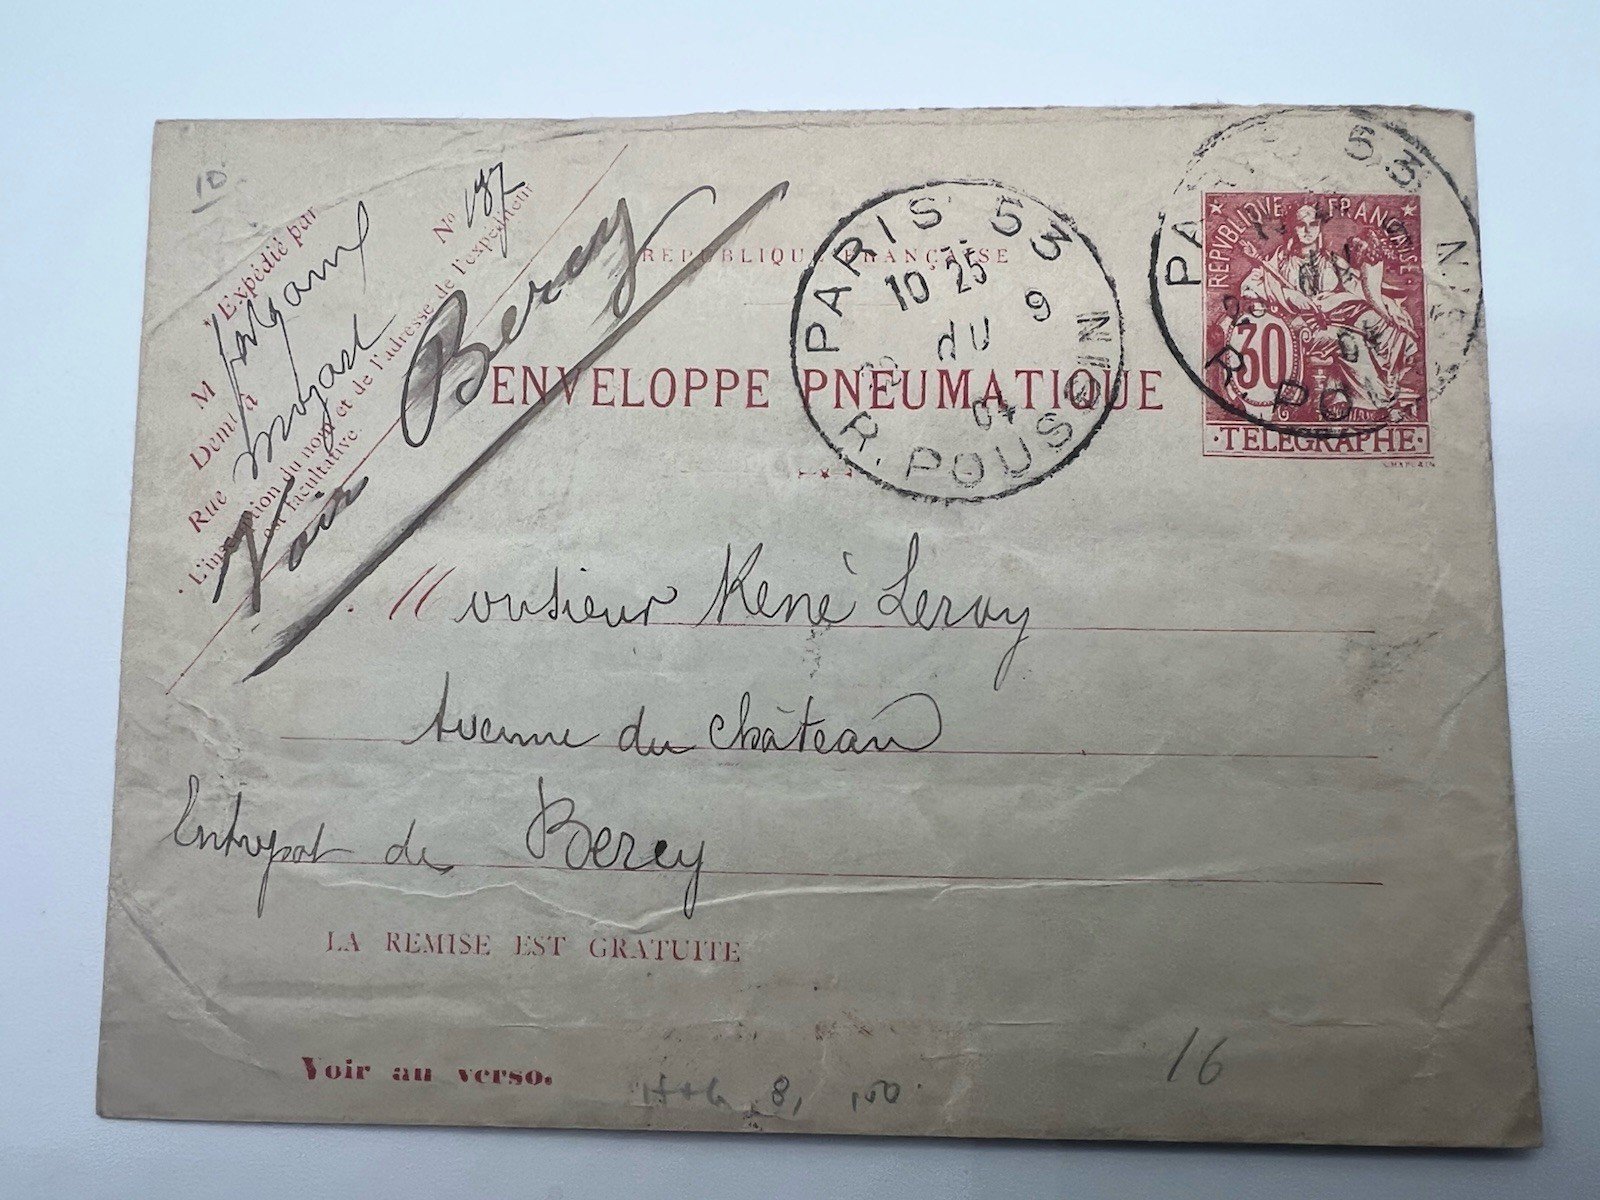 10.
M Expédié par
Demt à
Rue Mozart
No 137
L'inscription du nom et de l'adresse de l'expéditeur
est facultative.
Voir Bercy
RÉPUBLIQUE FRANÇAISE
ENVELOPPE PNEUMATIQUE
PARIS 53
10 25
9
04
R. POUSSIN
PARIS 53
04
R. POUSSIN
REPVBLIQVE FRANÇAISE
30
TELEGRAPHE
CHAPLAIN
Monsieur René Leroy
Avenue du Château
Entrepot de Bercy
LA REMISE EST GRATUITE
Voir au verso.
16